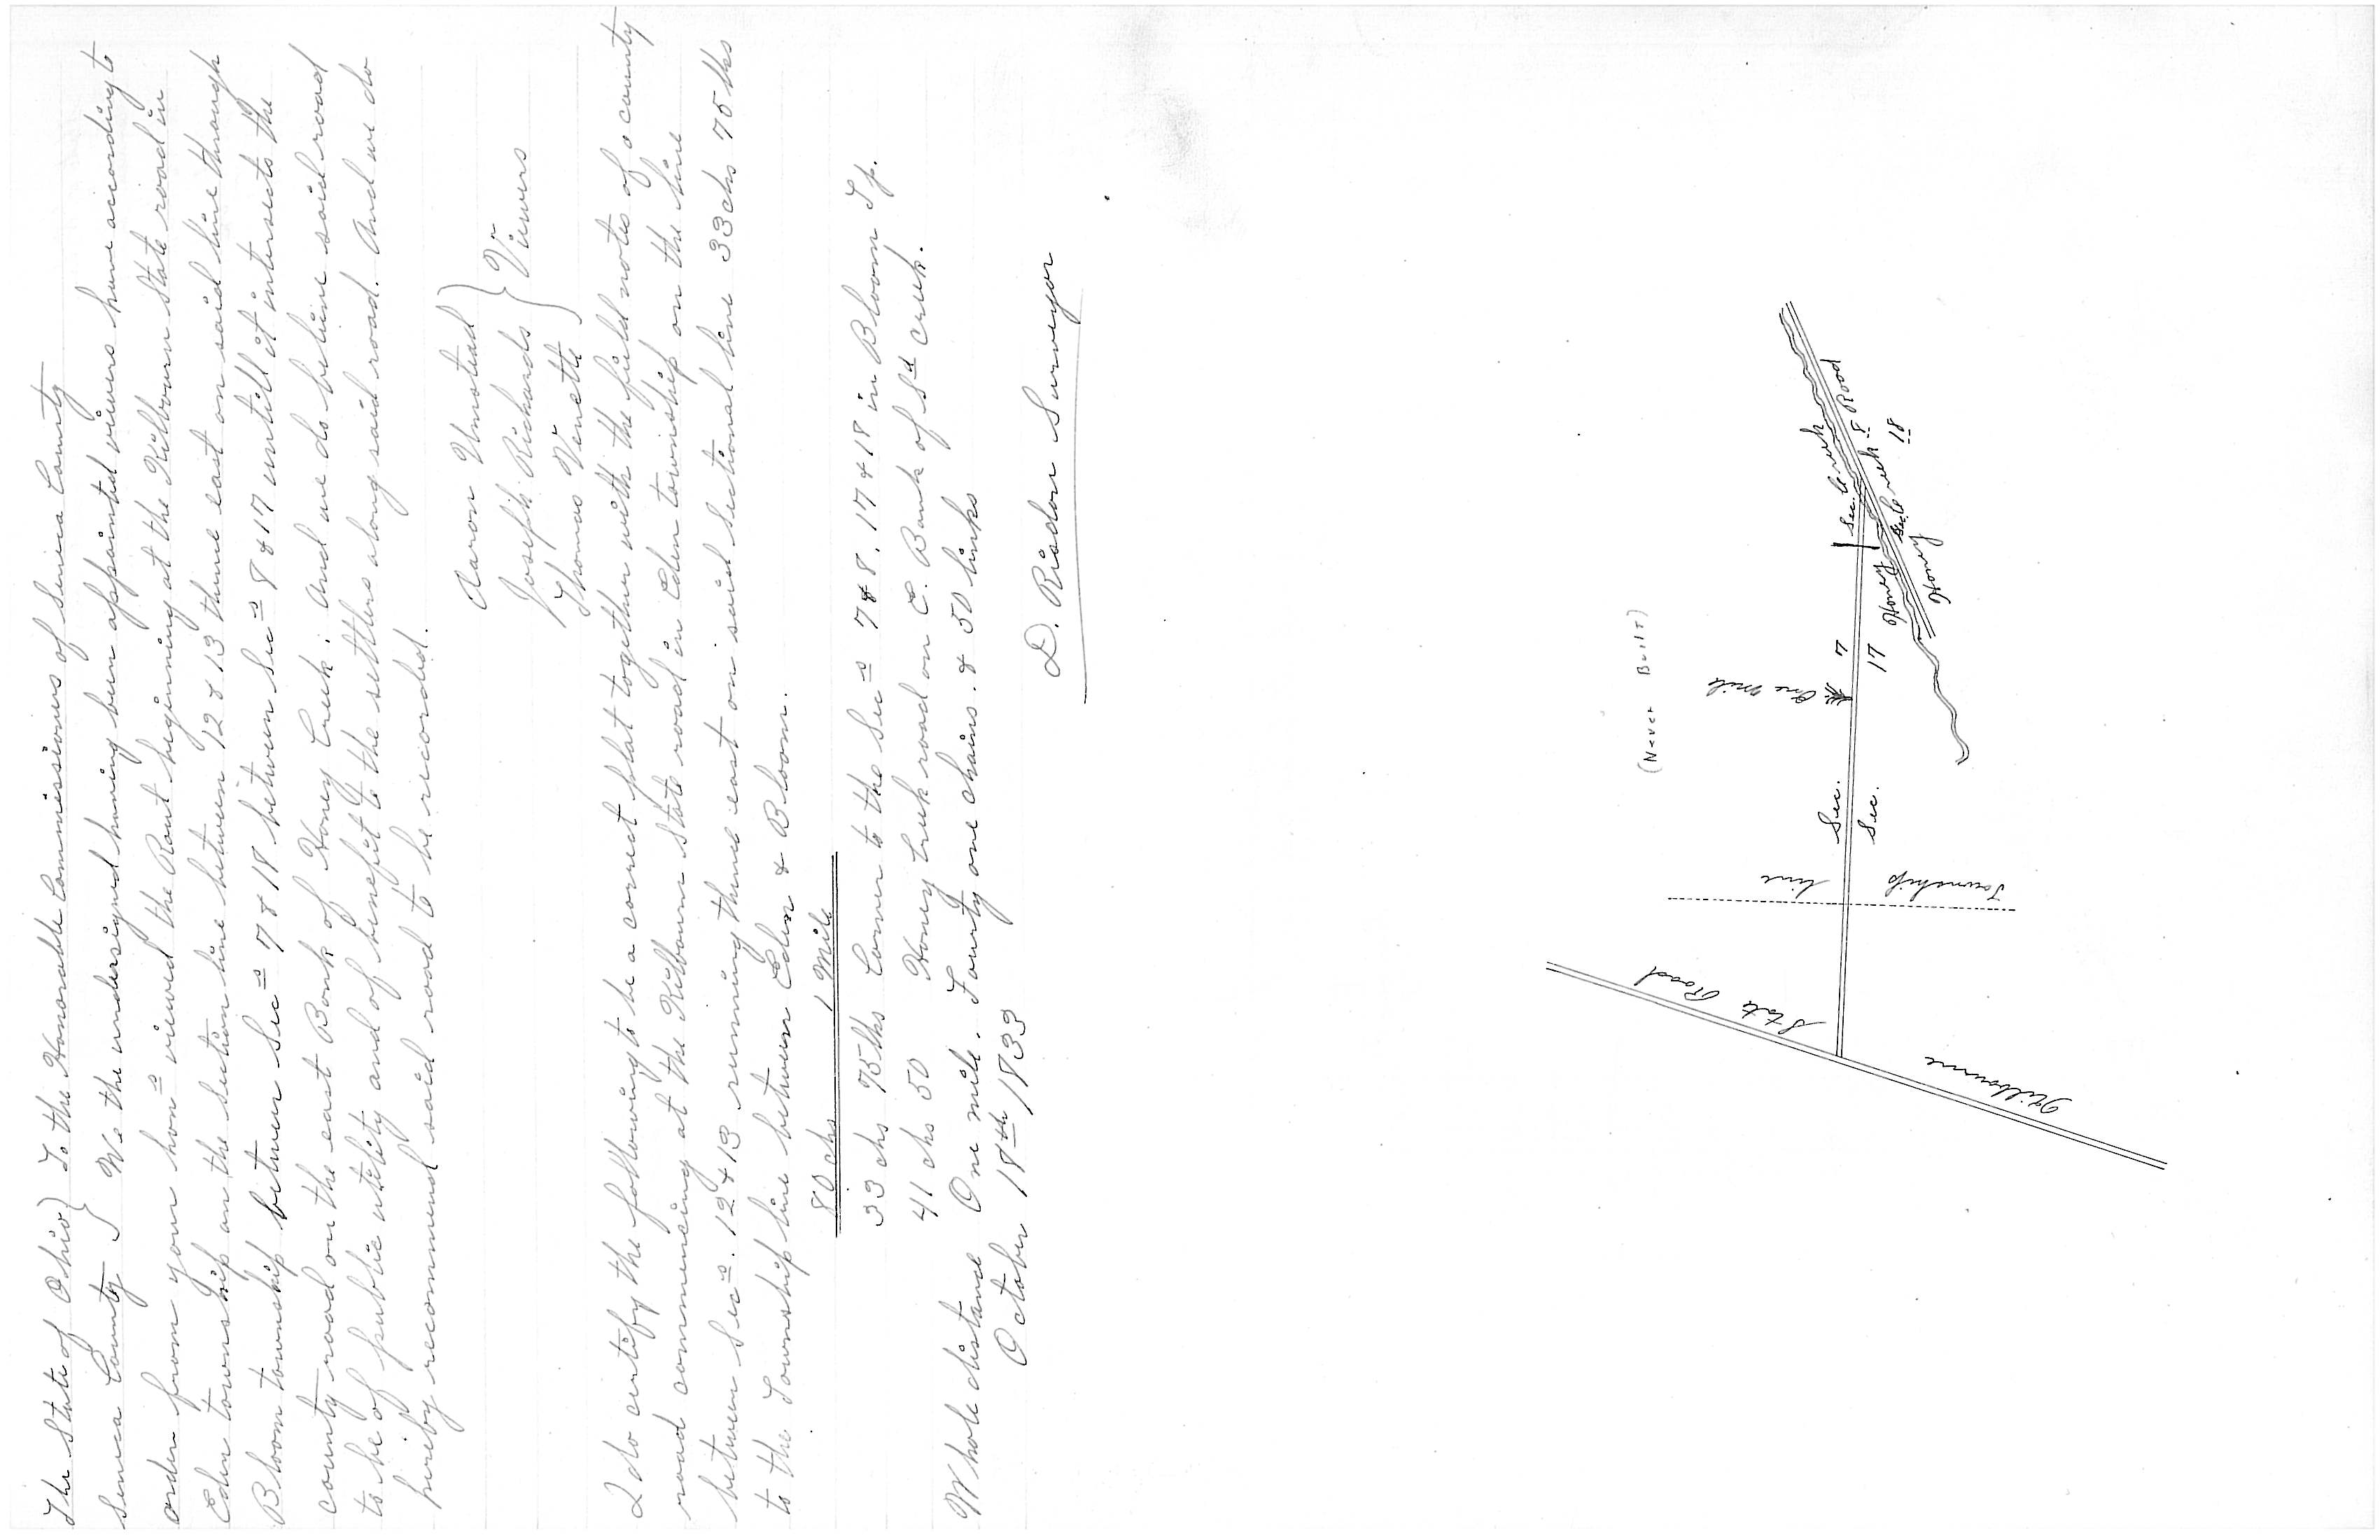 The State of Ohio } To the Honorable Commissioners of Seneca County
Seneca County } We the undersigned having been appointed viewers have according to
order from your hon= viewed the Rout beginning at the Kilbourn State road in
Eden township on the section line between 12 & 13 thence east on said line through
Bloom township between Secs 7 & 18 between Secs 8 & 17 untill it intersects the
county road on the east Bank of Honey Creek. And we do believe said road
to be of public utility and of benefit to the settlers along said road. And we do
hereby recommend said road to be recorded.
Aaron Umstead
Joseph Richards } Viewers
Thomas Venette
I do certify the following to be a correct plat together with the field notes of a county
road commencing at the Kilbourn State road in Eden township on the line
between Secs. 12 & 13 running thence east on said Sectional line 33 chs 75 lks
to the Township line between Eden & Bloom.
80 chs 1 Mile
33 chs 75 lks Corner to the Secs 7 & 8, 17 & 18 in Bloom Tp.
41 chs 50 Honey Creek road on E. Bank of Sd creek.
Whole distance One mile. Fourty one chains. & 50 links
October 18th 1833
D. Risdon Surveyor
(Never Built)
One Mile
Sec. 7
Sec. 17
Sec. 8
Sec. 18
Honey Creek
Honey Creek Road
Township line
Kilbourne State Road